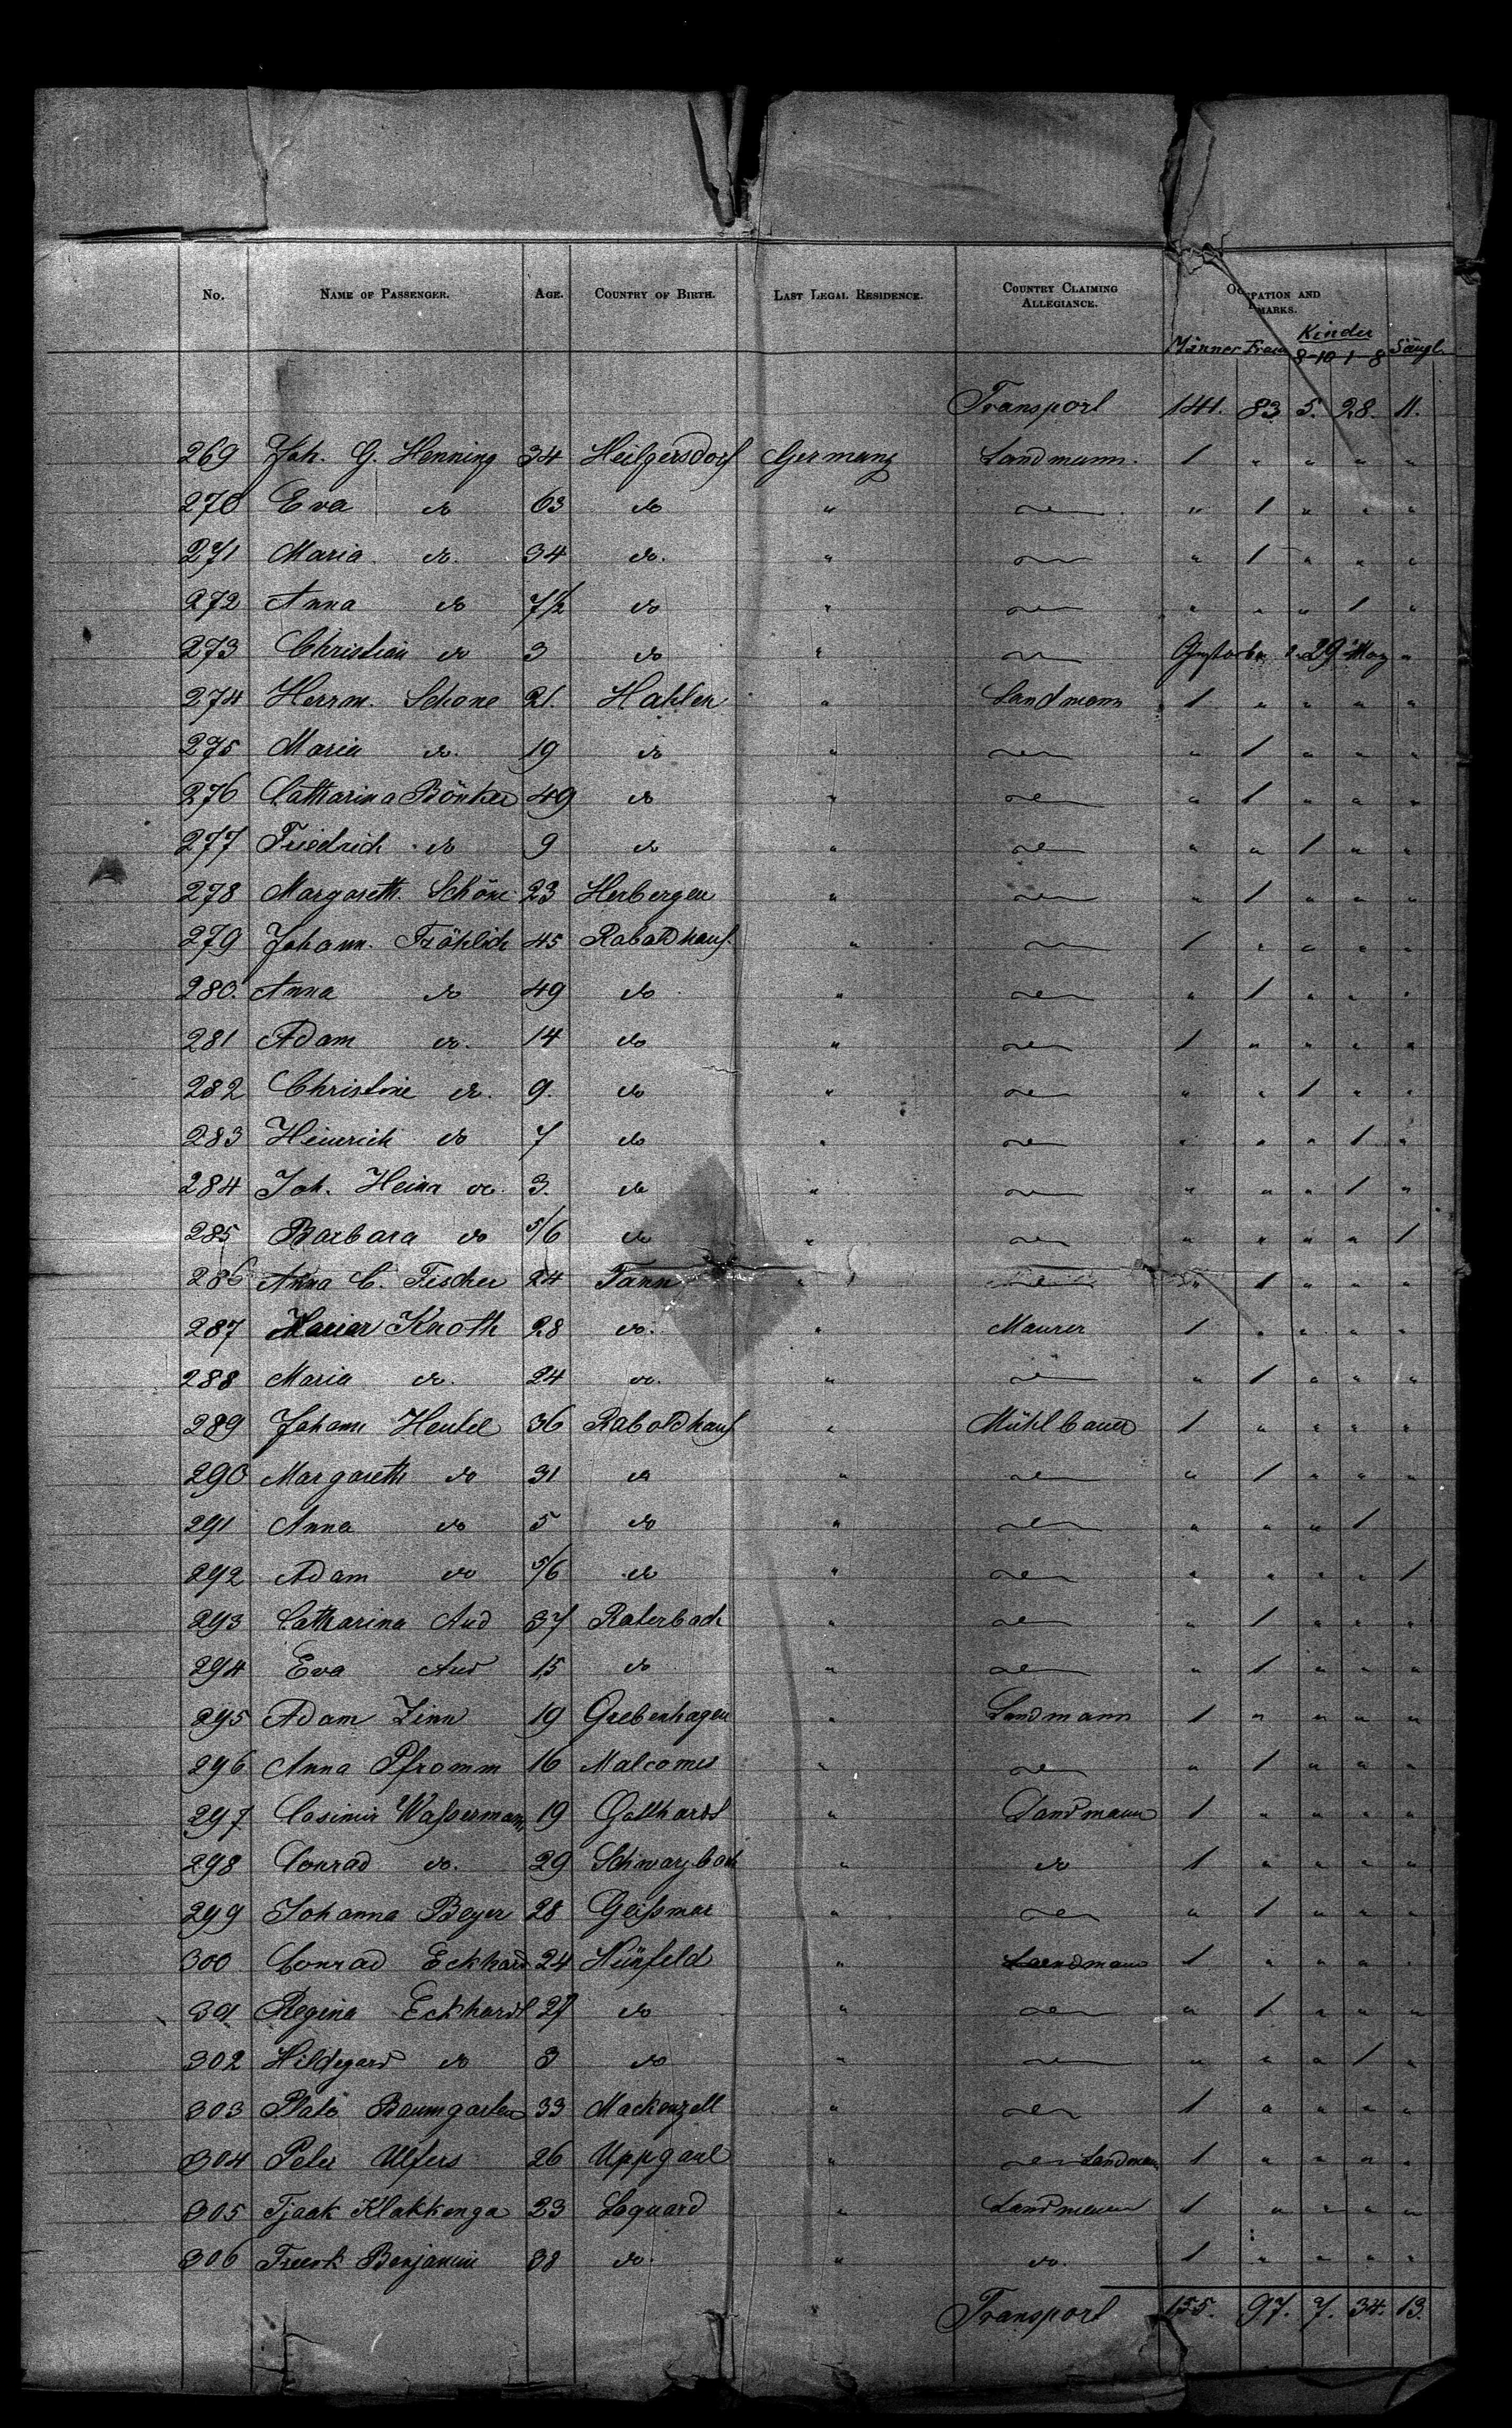 No. NAME OF PASSENGER. AGE. COUNTRY OF BIRTH. LAST LEGAL RESIDENCE. COUNTRY CLAIMING ALLEGIANCE. OCCUPATION AND REMARKS.
Männer Frau Kinder 8-10 1-8 Säugl.
Transport 141. 83 5. 28. 11.
269 Joh. G. Henning 34 Heilgersdorf Germany Landmann. 1 " " " "
270 Eva do 63 do " " 1 " " "
271 Maria do. 34 do. " " 1 " " "
272 Anna do 7½ do " " " " 1 "
273 Christian do 3 do " Gestorben 29 May "
274 Herrm. Schone 21. Hahlen " Landmann 1 " " " "
275 Maria do. 19 do " " 1 " " "
276 Catharina Bönker 49 do " " 1 " " "
277 Friedrich do 9 do " " " 1 " "
278 Margareth. Schöne 23 Herbergen " " 1 " " "
279 Johann. Fröhlich 45 Raboldhauf. " 1 " " " "
280. Anna do 49 do " " 1 " " "
281 Adam do. 14 do " 1 " " " "
282 Christine do. 9. do " " " 1 " "
283 Heinrich do 7 do " " " " 1 "
284 Joh. Heinr do. 3. do " " " " 1 "
285 Barbara do 5/6 do " " " " " 1
286 Anna C. Fischer 24 Tann " " 1 " " "
287 Knoth 28 do. " Maurer 1 " " " "
288 Maria do. 24 do. " " 1 " " "
289 Johann Heutel 36 Raboldhauf " Mühlbauer 1 " " " "
290 Margareth do 31 do " " 1 " " "
291 Anna do 5 do " " " " 1
292 Adam do 5/6 do " " " " " 1
293 Catharina Aud 37 Raterbach " " 1 " " "
294 Eva Aud 15 do " " 1 " " "
295 Adam Zinn 19 Grebenhagen " Landmann 1 " " " "
296 Anna Pfromm 16 Malcomes " " 1 " " "
297. Casimir Waßermann 19 Gotthards " Landmann 1 " " " "
298 Conrad do. 29 Schwarzbach " do 1 " " " "
299 Johanna Beyer 28 Geißmar " " 1 " " "
300 Conrad Eckhard 24 Hünfeld " Landmann 1 " " " "
301 Regina Eckhardt 27 do " " 1 " " "
302 Hildegard do 3 do " " " " 1 "
303 Plato Baumgarten 33 Mackenzell " 1 " " " "
304 Peter Ulfers 26 Uppgant " Landmann 1 " " " "
305 Tjaak Klakkenga 23 Loquard " Landmann 1 " " " "
306 Freerk Benjamin 38 do. " do. 1 " " " "
Transport 155. 97. 7. 34. 13.